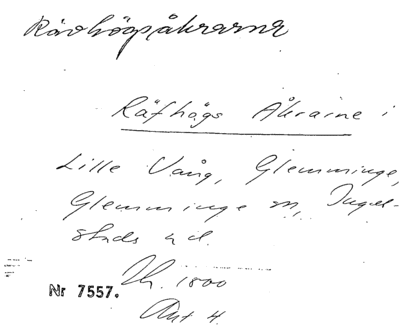 Rävhögsåkrarna
Räfhögs Åkrarne i
Lille Vång, Glemminge,
Glemminge sn, Ingel-
stads hd.
Nr 7557.
Ant 4.